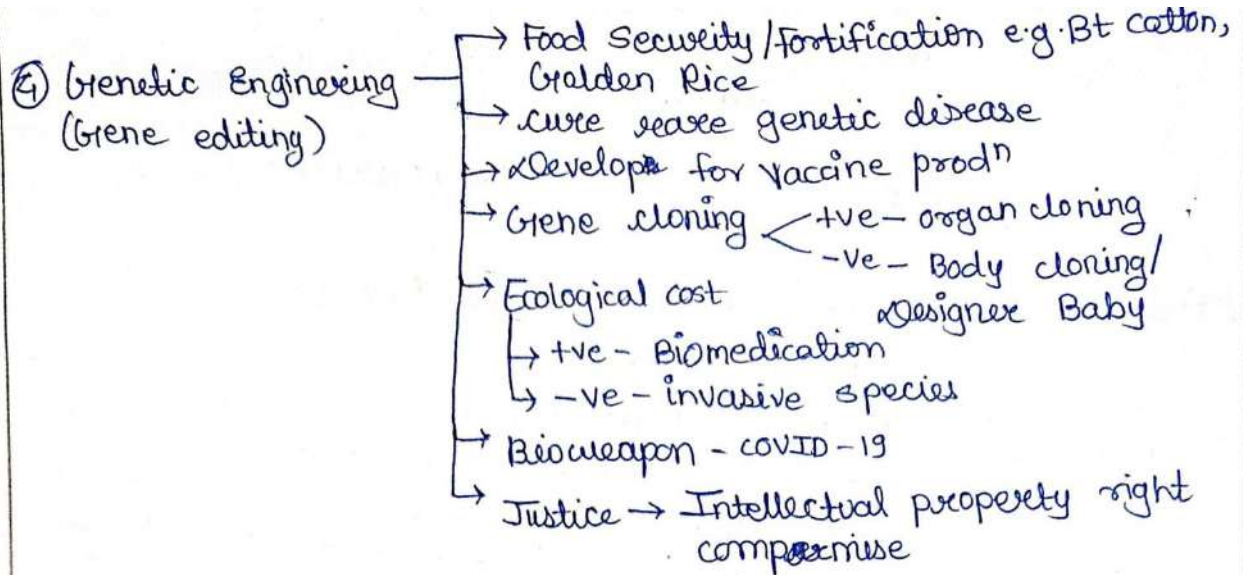 ④ Genetic Enginering → Food Security/Fortification e.g. Bt cotton,
(Gene editing) Golden Rice
→ cure rare genetic disease
→ Develop for vaccine prodⁿ
→ Gene cloning +ve - organ cloning
-ve - Body cloning/
Designer Baby
→ Ecological cost
→ +ve - Biomedication
→ -ve - invasive species
→ Bioweapon - COVID-19
→ Justice → Intellectual property right